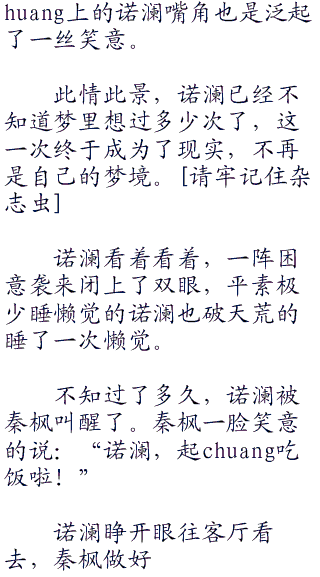 huang上的诺澜嘴角也是泛起
了一丝笑意。
此情此景，诺澜已经不
知道梦里想过多少次了，这
一次终于成为了现实，不再
是自己的梦境。[请牢记住杂
志虫]
诺澜看着看着，一阵困
意袭来闭上了双眼，平素极
少睡懒觉的诺澜也破天荒的
睡了一次懒觉。
不知过了多久，诺澜被
秦枫叫醒了。秦枫一脸笑意
的说：“诺澜，起chuang吃
饭啦！”
诺澜睁开眼往客厅看
去，秦枫做好